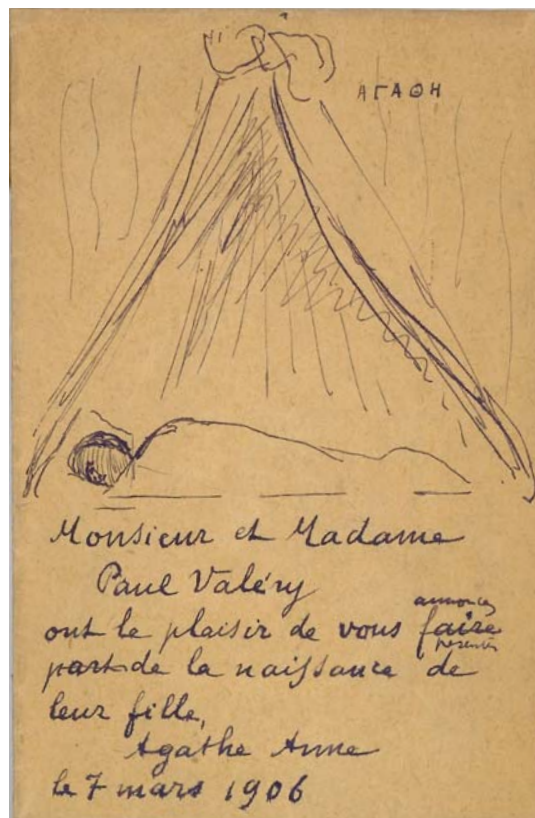 ΑΓΑΘΗ
Monsieur et Madame
Paul Valéry
annoncer
ont le plaisir de vous faire
part de la naissance de
leur fille,
Agathe Anne
le 7 mars 1906